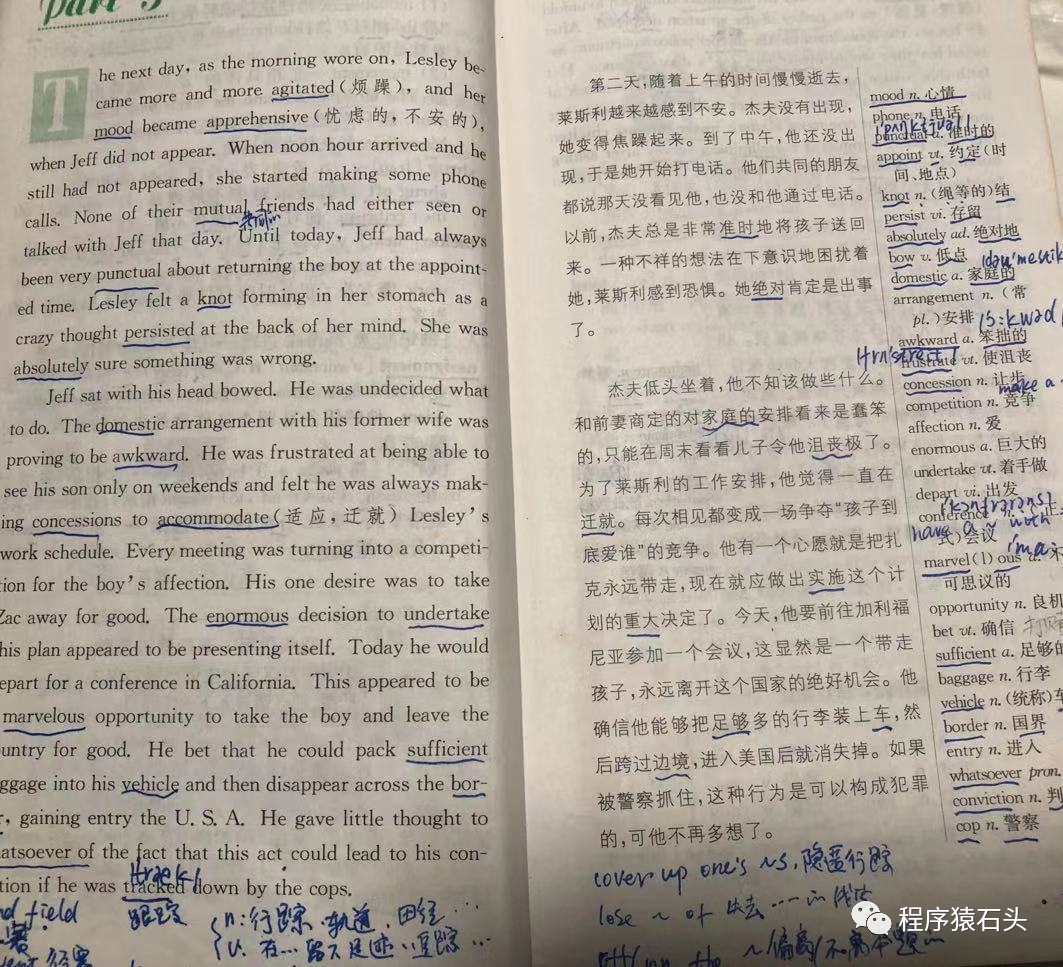 Part 3
The next day, as the morning wore on, Lesley be-
came more and more agitated (烦躁), and her
mood became apprehensive (忧虑的,不安的),
when Jeff did not appear. When noon hour arrived and he
still had not appeared, she started making some phone
calls. None of their mutual friends had either seen or
talked with Jeff that day. Until today, Jeff had always
been very punctual about returning the boy at the appoint-
ed time. Lesley felt a knot forming in her stomach as a
crazy thought persisted at the back of her mind. She was
absolutely sure something was wrong.
Jeff sat with his head bowed. He was undecided what
to do. The domestic arrangement with his former wife was
proving to be awkward. He was frustrated at being able to
see his son only on weekends and felt he was always mak-
ing concessions to accommodate (适应,迁就) Lesley's
work schedule. Every meeting was turning into a competi-
tion for the boy's affection. His one desire was to take
Zac away for good. The enormous decision to undertake
his plan appeared to be presenting itself. Today he would
epart for a conference in California. This appeared to be
marvelous opportunity to take the boy and leave the
untry for good. He bet that he could pack sufficient
ggage into his vehicle and then disappear across the bor-
r, gaining entry the U. S. A. He gave little thought to
atsoever of the fact that this act could lead to his con-
tion if he was tracked down by the cops.
/træk/
field
跟踪
n: 行踪、轨道,田径…
v.
第二天,随着上午的时间慢慢逝去,
莱斯利越来越感到不安。杰夫没有出现,
她变得焦躁起来。到了中午,他还没出
现,于是她开始打电话。他们共同的朋友
都说那天没看见他,也没和他通过电话。
以前,杰夫总是非常准时地将孩子送回
来。一种不祥的想法在下意识地困扰着
她,莱斯利感到恐惧。她绝对肯定是出事
了。
杰夫低头坐着,他不知该做些什么。
和前妻商定的对家庭的安排看来是蠢笨
的,只能在周末看看儿子令他沮丧极了。
为了莱斯利的工作安排,他觉得一直在
迁就。每次相见都变成一场争夺“孩子到
底爱谁”的竞争。他有一个心愿就是把扎
克永远带走,现在就应做出实施这个计
划的重大决定了。今天,他要前往加利福
尼亚参加一个会议,这显然是一个带走
孩子,永远离开这个国家的绝好机会。他
确信他能够把足够多的行李装上车,然
后跨过边境,进入美国后就消失掉。如果
被警察抓住,这种行为是可以构成犯罪
的,可他不再多想了。
cover up one's ~s,隐匿行踪
lose ~ of 失去
the ~/偏离/不离本题
mood n. 心情
phone n. 电话
punctual a. 准时的
appoint vt. 约定(时
间、地点)
knot n. (绳等的)结
persist vi. 存留
absolutely ad. 绝对地
bow v. 低点
domestic a. 家庭的
arrangement n. (常
pl.)安排
awkward a. 笨拙的
frustrate vt. 使沮丧
concession n. 让步
make a
competition n. 竞争
affection n. 爱
enormous a. 巨大的
undertake vt. 着手做
depart vi. 出发
conference n.
have a ~ with
式)会议
marvel(l)ous a.
可思议的
opportunity n. 良机
bet vt. 确信
sufficient a. 足够的
baggage n. 行李
vehicle n. (统称)车
border n. 国界
entry n. 进入
whatsoever pron.
conviction n. 判
cop n. 警察
程序猿石头